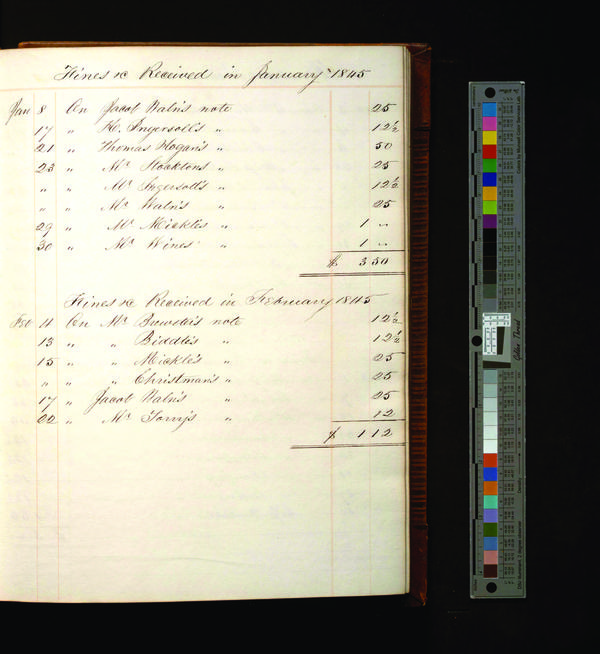 Fines &c Received in January 1845
Jan 8 On Jacob Waln's note 25
17 " H. Ingersoll's " 12½
21 " Thomas Hogan's " 50
23 " Mr Stockton's " 25
" " Mr Ingersoll's " 12½
" " Mr Waln's " 25
29 " Mr Mickle's " 1 "
30 " Mr Hines' " 1 "
$ 3 50
Fines &c Received in February 1845
Feb 11 On Mr Brewster's note 12½
13 " " Biddle's " 12½
15 " " Mickle's " 25
" " " Christman's " 25
17 " Jacob Waln's " 25
22 " Mr 12
$ 1 12